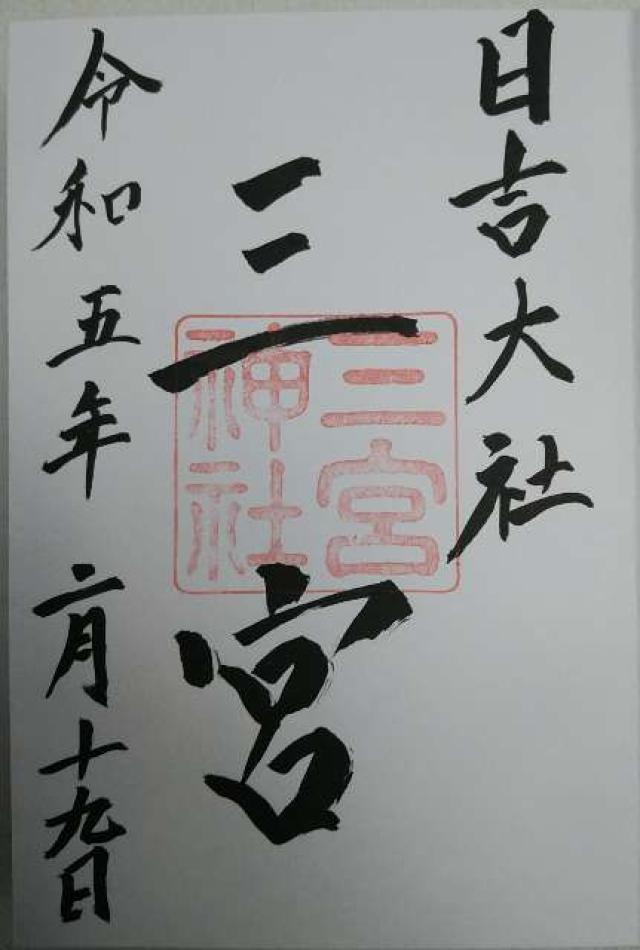 日吉大社
三宮
三宮
神社
令和五年二月十九日